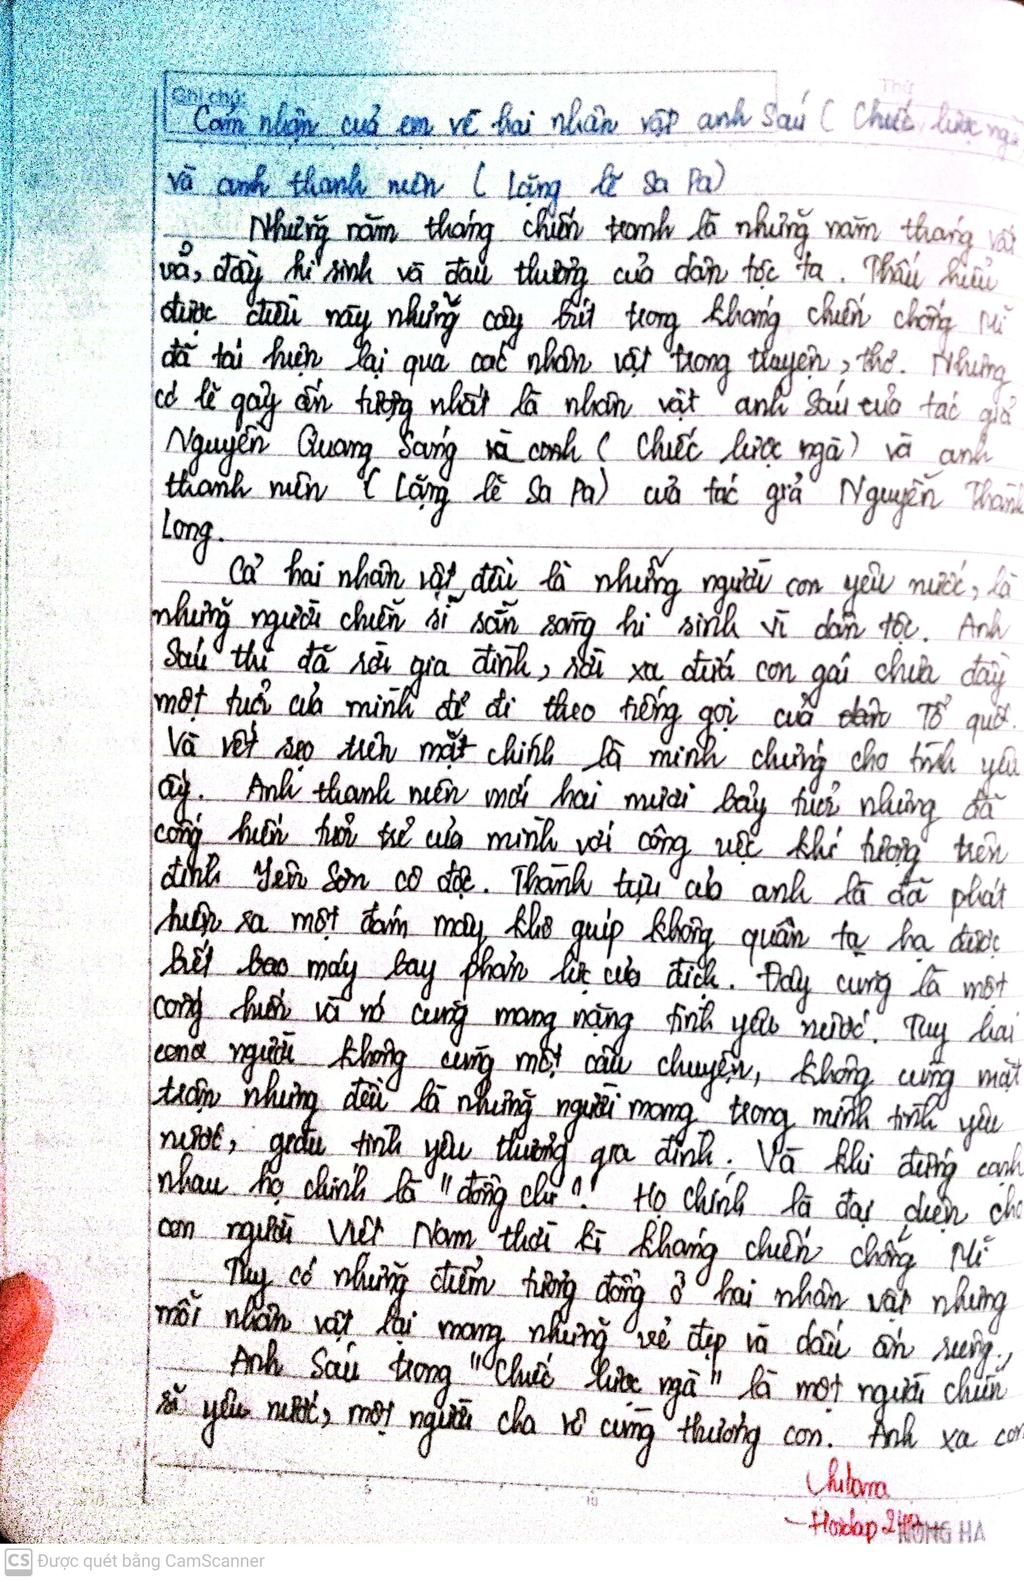 Ghi chú:
Thứ
Cảm nhận cuả em về hai nhân vật anh Sáu ( Chiếc lược ngà
và anh thanh niên ( Lặng lẽ Sa Pa)
Những năm tháng chiến tranh là những năm tháng vất
vả, đầy hi sinh và đau thương của dân tộc ta. Thấu hiểu
được điều này những cây bút trong kháng chiến chống Mĩ
đã tái hiện lại qua các nhân vật trong truyện, thơ. Nhưng
có lẽ gây ấn tượng nhất là nhân vật anh Sáu của tác giả
Nguyễn Quang Sáng ( Chiếc lược ngà) và anh
thanh niên ( Lặng lẽ Sa Pa) của tác giả Nguyễn Thành
Long.
Cả hai nhân vật đều là những người con yêu nước, là
những người chiến sĩ sẵn sàng hi sinh vì dân tộc. Anh
Sáu thì đã rời gia đình, rời xa đứa con gái chưa đầy
một tuổi của mình để đi theo tiếng gọi của Tổ quốc.
Và vết sẹo trên mặt chính là minh chứng cho tình yêu
ấy. Anh thanh niên mới hai mươi bảy tuổi nhưng đã
cống hiến tuổi trẻ của mình với công việc khí tượng trên
đỉnh Yên Sơn cô độc. Thành tựu của anh là đã phát
hiện ra một đám mây khô giúp không quân ta hạ được
biết bao máy bay phản lực của địch. Đây cũng là một
cống hiến và nó cũng mang nặng tình yêu nước. Tuy hai
con người không cùng một câu chuyện, không cùng mặt
trận nhưng đều là những người mang trong mình tình yêu
nước, giàu tình yêu thương gia đình. Và khi đứng cạnh
nhau họ chính là "đồng chí". Họ chính là đại diện cho
con người Việt Nam thời kì kháng chiến chống Mĩ
Tuy có những điểm tương đồng ở hai nhân vật nhưng
mỗi nhân vật lại mang những vẻ đẹp và dấu ấn riêng.
Anh Sáu trong "Chiếc lược ngà" là một người chiến
sĩ yêu nước, một người cha vô cùng thương con. Anh xa con
HONG HA
CS Được quét bằng CamScanner